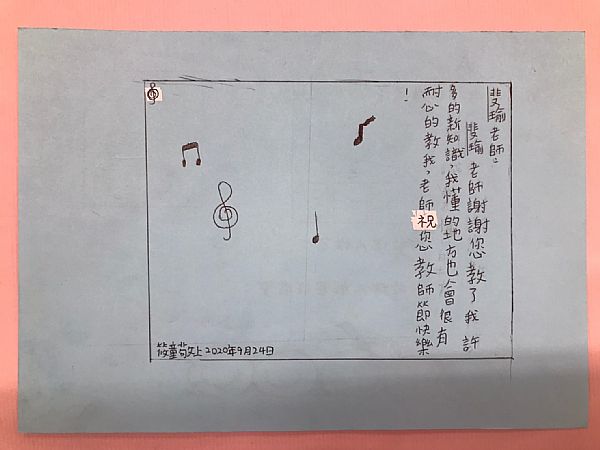 斐瑜老師：
斐瑜老師謝謝您教了我許
多的新知識，我懂的地方也會很有
耐心的教我，老師祝您教師節快樂
！
筱童敬上2020年9月24日